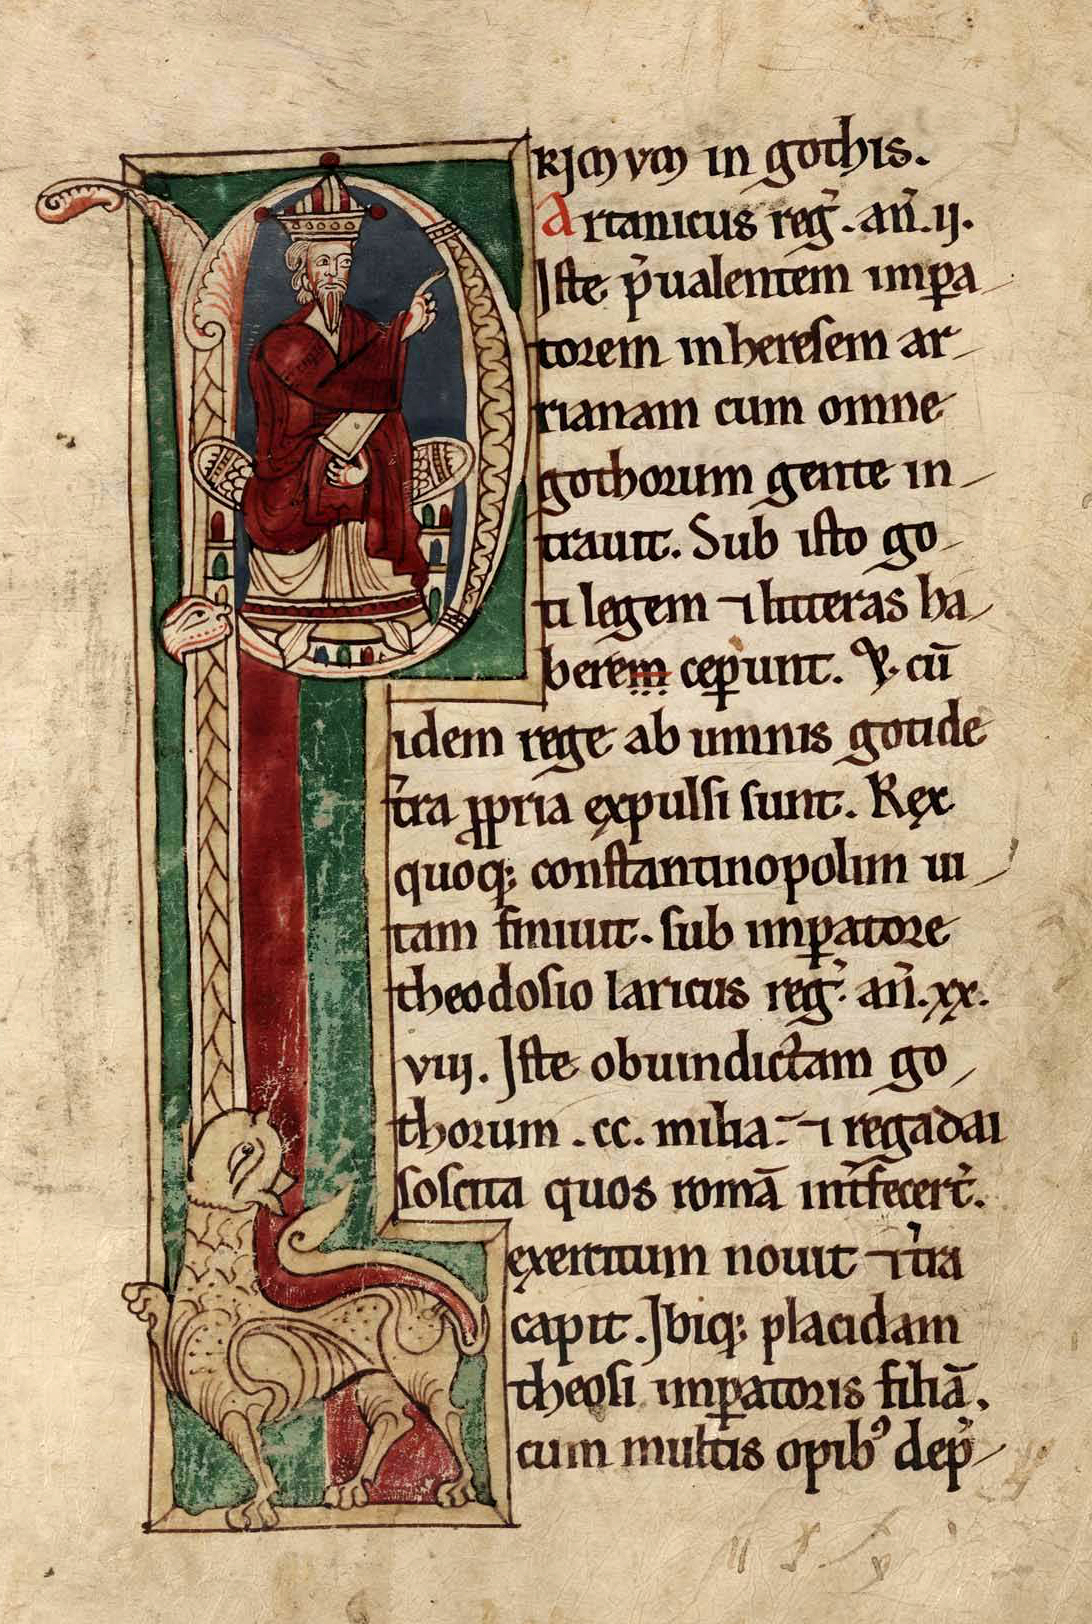 PRIMUM in gothis.
Artanicus reg̃. añ. ij.
Iste p̃ualentem imꝑa
torem in heresem ar
rianam cum omne
gothorum gente in
trauit. Sub isto go
ti legem ⁊ litteras ha
berem ceꝑunt. cũ
idem rege ab umnis goti de
t̃ra ꝓpria expulsi sunt. Rex
quoq; constantinopolim ui
tam finiuit. sub imꝑatore
theodosio laricus reg̃. añ. xx.
viij. Iste ob uindictam go
thorum .cc. milia. ⁊ regadai
soscita quos romã int̃fecert̃.
exercitum nouit ⁊ t̃ra
capit. Ibiq; placidam
theosi imꝑatoris filiã.
cum multis opibꝰ dep̃